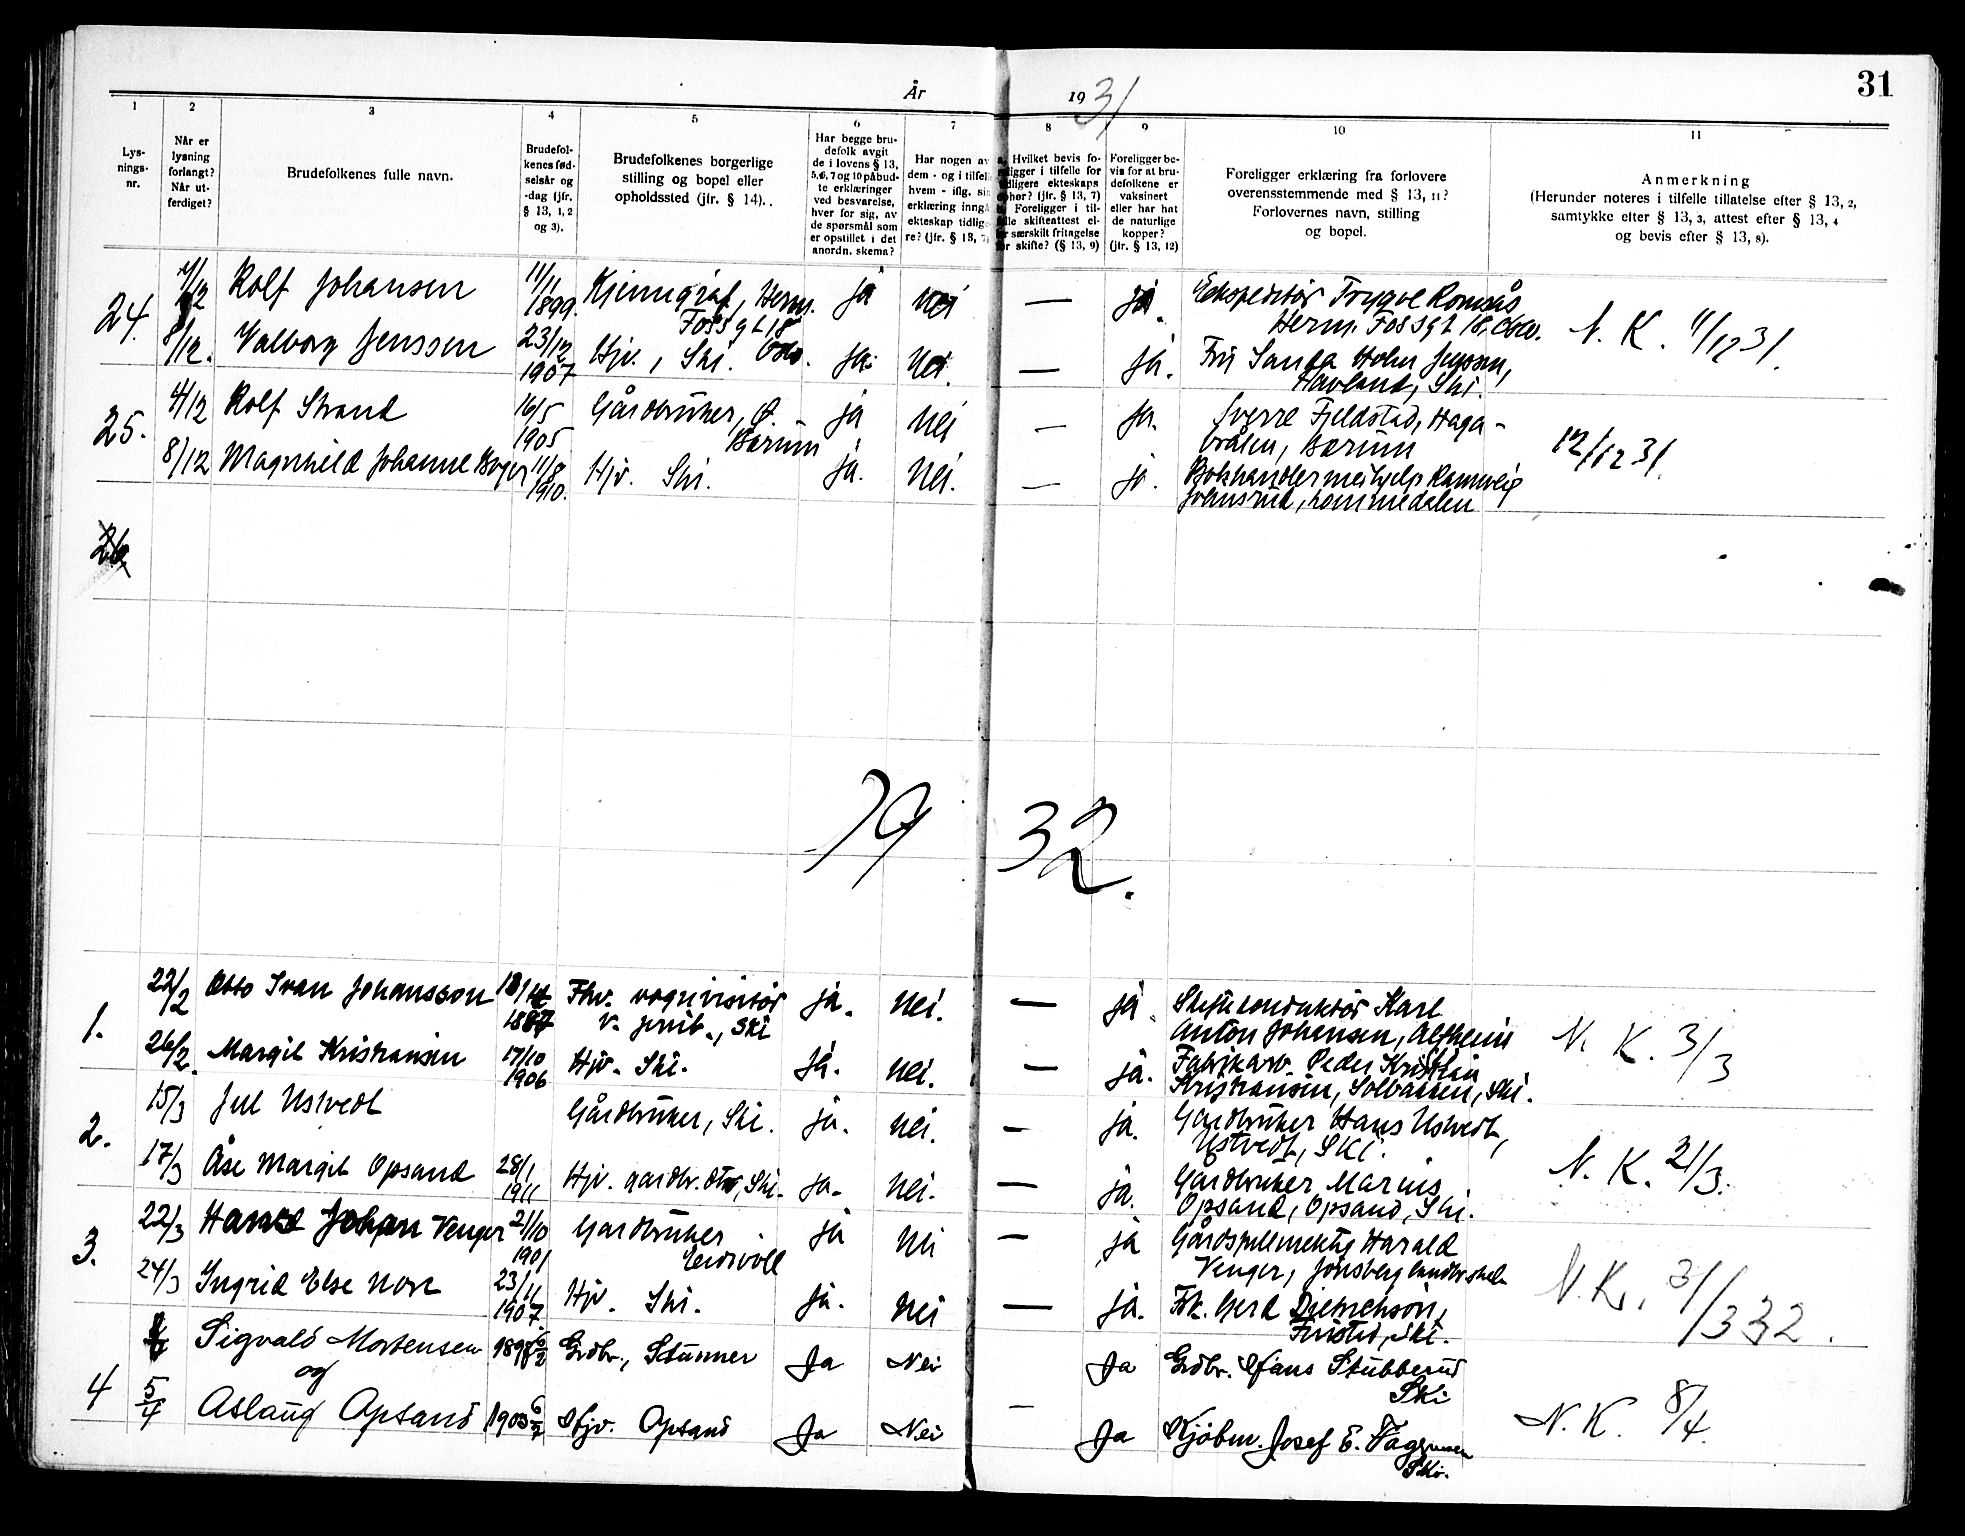 31
År 1931
1 2 3 4 5 6 7 8 9 10 11
Lys-
nings-
nr.
Når er
lysning
forlangt?
Når ut-
ferdiget?
Brudefolkenes fulle navn.
Brudefol-
kenes fød-
selsår og
-dag (jfr.
§ 13, 1, 2
og 3).
Brudefolkenes borgerlige
stilling og bopel eller
opholdssted (jfr. § 14).
Har begge bru-
defolk avgit
de i lovens § 13,
5, 6, 7 og 10 påbud-
te erklæringer
ved besvarelse,
hver for sig, av
de spørsmål som
er opstillet i det
anordn. skema?
Har nogen av
dem - og i tilfelle
hvem - iflg. sin
erklæring inngå
ekteskap tidlige-
re? (jfr. § 13, 7)
Hvilket bevis fo-
religger i tilfelle for
tidligere ekteskaps
ophør? (jfr. § 13, 7)
Foreligger i til-
felle skifteattest el-
er særskilt fritagelse
for skifte? (§ 13, 9)
Foreligger be-
vis for at bru-
defolkene er
vaksinert
eller har hat
de naturlige
kopper?
(jfr. § 13, 12)
Foreligger erklæring fra forlovere
overensstemmende med § 13, 11?
Forlovernes navn, stilling
og bopel.
Anmerkning
(Herunder noteres i tilfelle tillatelse efter § 13, 2,
samtykke efter § 13, 3, attest efter § 13, 4
og bevis efter § 13, 8).
24. Rolf Johansen 11/11 1899. Kjemigraf, Herm. Foss gt 18 Oslo. ja nei — ja. Ekspeditør Trygve Romsås
Herm. Foss gt 18, Oslo. N. K. 11/12 31.
8/12. Valborg Jenssen 23/12 1907 Hjv., Ski. ja. nei. — ja. Fru Sanda Holm Jenssen,
Havland, Ski.
25. 4/12 Rolf Strand 16/5 1905 Gårdbruker, Ø. Bærum ja nei — ja. Sverre Fjeldstad, Haga-
bråten, Bærum 12/12 31.
8/12 Magnhild Johanne 11/8 1910. Hjv. Ski. ja. nei. — ja. Bokhandlermedhjelp Rannveig
Johnsrud, Lommedalen
26
19 32.
1. 22/2 Otto Ivan Johansson Fhv. vognvisitør
v. jernb., Ski ja. nei. — ja. Skiftekonduktør Karl
Anton Johansen, Alfheim N. K. 3/3
26/2. Margit Kristiansen 17/10 1906 Hjv. Ski. ja. nei. — ja. Fabrikarb. Peder Kristian
Kristiansen, Solbakken, Ski.
2. 15/3 Jul Ustvedt Gårdbruker, Ski. ja. nei. — ja. Gardbruker Hans Ustvedt,
Ustvedt, Ski. N. K. 21/3.
17/3 Åse Margit Opsand 28/1 1911 Hjv. gardbr.dtr, Ski. ja. nei. — ja. Gårdbruker Marius
Opsand, Opsand, Ski.
3. 22/3 Hans Johan Venger 21/10 1901 Gardbruker
Eidsvoll ja nei — ja Gårdsfullmektig Harald
Venger, Jønsberg landbr.skole N. K. 31/3 32.
24/3 Ingrid Else Nore 23/11 1907. Hjv. Ski. ja. nei — ja. Frk. Gerd Dietrichson,
Finstad, Ski.
4 Sigvald Mortensen Grdbr., Stunner Ja Nei Ja Grdbr. Hans Stubberud
Ski
og
5/4 Aslaug Opsand Hjv. Opsand Ja Nei — Ja Kjøbm. Josef E.
Ski. N. K. 8/4.